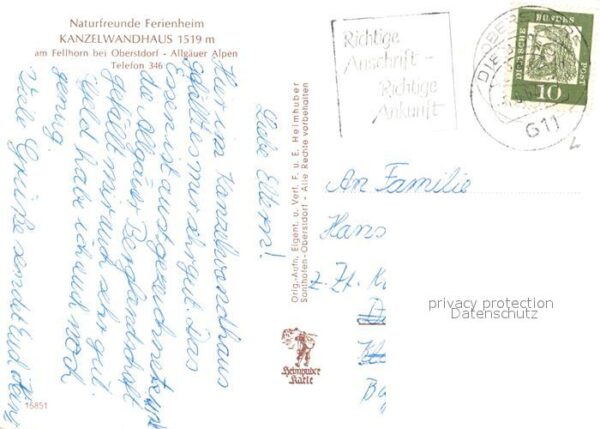 Naturfreunde Ferienheim
KANZELWANDHAUS 1519 m
am Fellhorn bei Oberstdorf - Allgäuer Alpen
Telefon 346
Liebe Eltern!
Hier im Kanzelwandhaus
gefällt es mir sehr gut. Das
Essen ist ausgezeichnet und
die Allgäuer Berglandschaft
gefällt mir auch sehr gut.
Geld habe ich auch noch
genug.
Viele Grüße sendet Euch
Orig.-Aufn. Eigent. u. Verl. F. u. E. Heimhuber
Sonthofen-Oberstdorf - Alle Rechte vorbehalten
Heimhuber
Karte
16851
Richtige
Anschrift -
Richtige
Ankunft
DEUTSCHE BUNDESPOST
10
G11
An Familie
Hans
z. Zt. K
privacy protection
Datenschutz